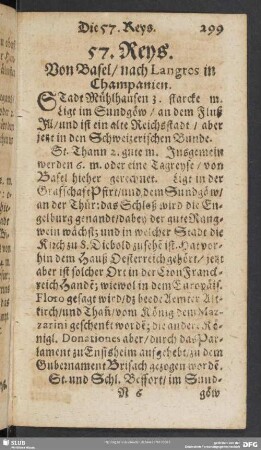 Die 57. Reys. 299
57. Reys.
Von Basel / nach Langres in
Champanien.
STadt Mühlhausen 3. starcke m.
Ligt im Sundgöw / an dem Fluß
Ill / und ist ein alte Reichsstadt / aber
jetzt in den Schweizerischen Bunde.
St. Thann 2. gute m. Insgemein
werden 6. m. oder eine Tagreyse / von
Basel hieher gerechnet. Ligt in der
Graffschafft Pfirt / und dem Sundgöw /
an der Thür: das Schloß wird die En-
gelburg genandt / dabey der gute Rang-
wein wächst; und in welcher Stadt die
Kirch zu S. Diebold zu sehē ist. Hat vor-
hin dem Hauß Oesterreich gehört / jetzt
aber ist solcher Ort in der Cron Franck-
reich Handē; wiewol in dem Europäis.
Floro gesagt wird / dz beede Aemter Alt-
kirch / und Thañ / vom König dem Maz-
zarini geschenkt wordē; die andere Kö-
nigl. Donationes aber / durch das Par-
lament zu Ensisheim auffgehebt / zu dem
Gubernament Brisach gezogen wordē.
St. und Schl. Beffort / im Sund-
N 6 göw